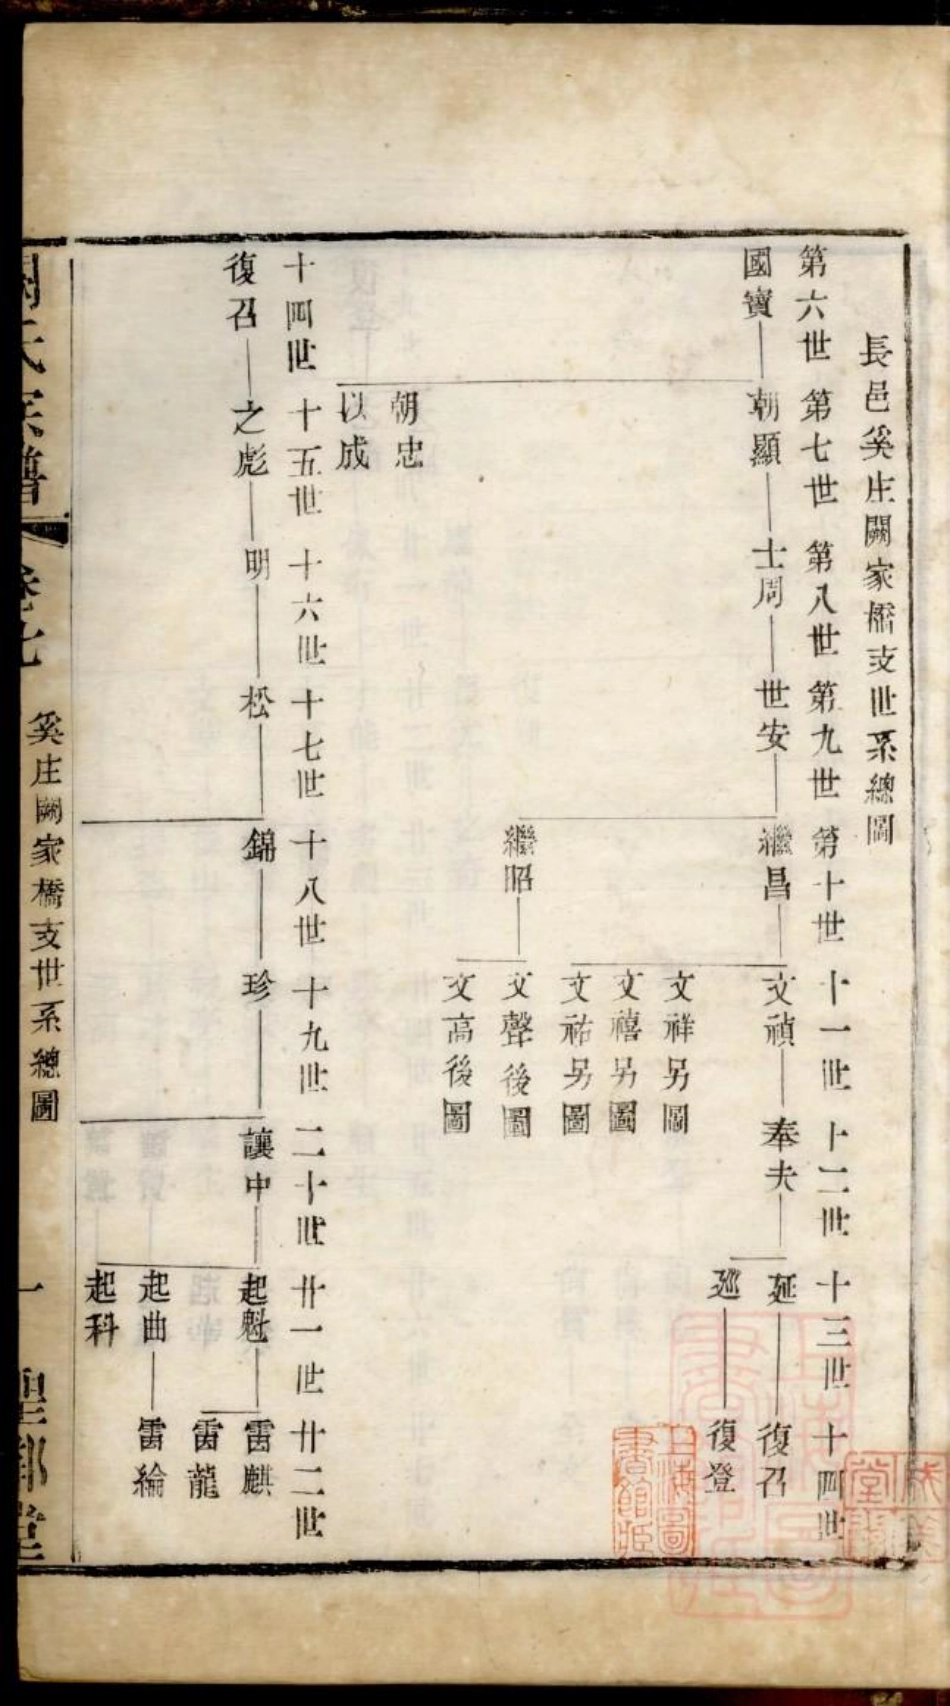 長邑奚庄闕家橋支世系總圖
第六世 第七世 第八世 第九世 第十世 十一世 十二世 十三世 十四世
國寶 朝顯 士周 世安 繼昌 文禎 奉夫 延 復召
廵 復登
文祥另圖
文禧另圖
文祐另圖
繼昭 文聲後圖
文高後圖
朝忠
以成
十四世 十五世 十六世 十七世 十八世 十九世 二十世 廿一世 廿二世
復召 之彪 明 松 錦 珍 讓中 起魁 雷麒
雷龍
起曲 雷綸
起科
氏宗譜 卷七 奚庄闕家橋支世系總圖 一
上海圖書館藏